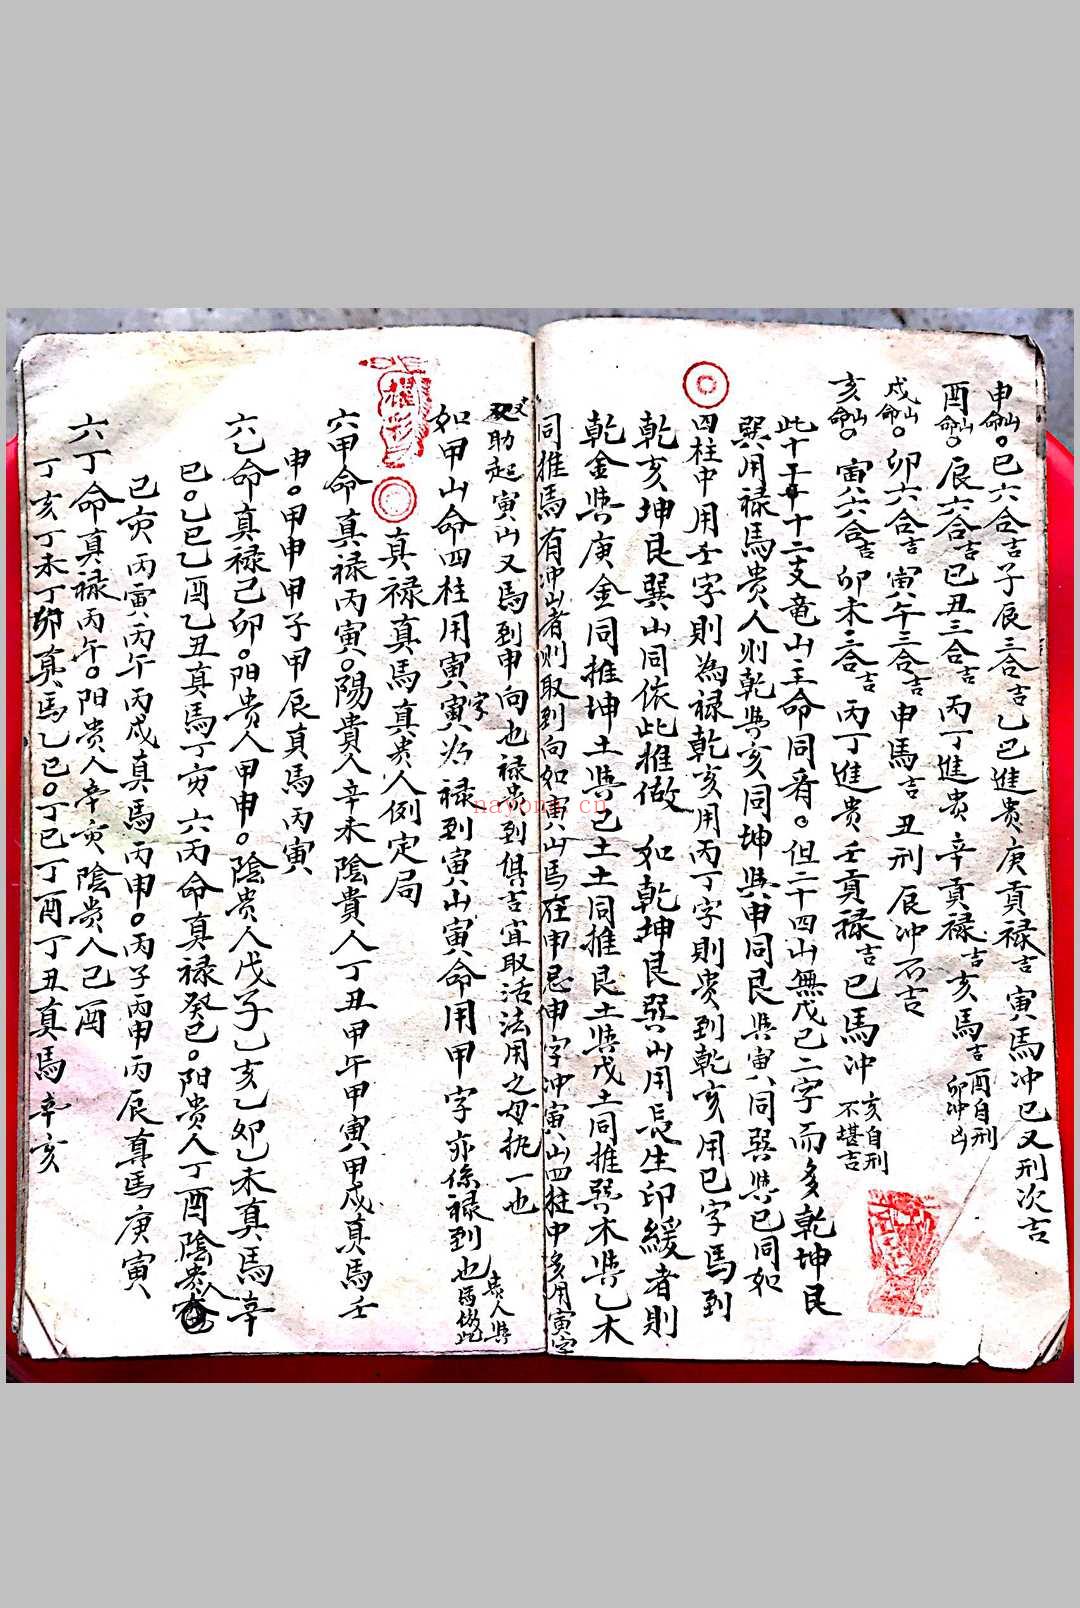 申山命。巳六合吉子辰三合吉乙巳進贵庚貢禄吉寅馬冲巳又刑次吉
酉山命。辰六合吉巳丑三合吉丙丁進贵辛貢禄吉亥馬吉酉自刑卯冲凶
戍山命。卯六合吉寅午三合吉申馬吉丑刑辰冲不吉
亥山命。寅六合吉卯未三合吉丙丁進贵壬貢禄吉巳馬冲亥自刑不堪吉
此十干十二支竜山主命同看。但二十四山無戊己二字而多乾坤艮
巽用禄馬贵人则乾與亥同坤與申同艮與寅同巽與巳同如
四柱中用壬字則為禄乾亥用丙丁字則贵到乾亥用巳字馬到
乾亥坤艮巽山同依此推做 如乾坤艮巽山用長生印綬者則
乾金與庚金同推坤土與己土同推艮土與戊土同推巽木與乙木
同推馬有冲山者则取到向如寅山馬在申忌申字冲寅山四柱中多用寅字
助起寅山又馬到申向也禄贵到俱吉宜取活法用之毋执一也
如甲山命四柱用寅寅字为禄到寅山寅命用甲字亦係禄到也贵人與馬倣此
真禄真馬真贵人例定局
六甲命真禄丙寅。陽貴人辛未陰貴人丁丑甲午甲寅甲戍真馬壬
申。甲申甲子甲辰真馬丙寅
六乙命真禄己卯。阳贵人甲申。陰贵人戊子乙亥乙卯乙未真馬辛
巳。乙巳乙酉乙丑真馬丁亥六丙命真禄癸巳。阳贵人丁酉陰贵人
己亥丙寅丙午丙戍真馬丙申。丙子丙申丙辰真馬庚寅
六丁命真禄丙午。阳贵人辛亥陰贵人己酉
丁亥丁未丁卯真馬乙巳。丁巳丁酉丁丑真馬辛亥
nayona.cn